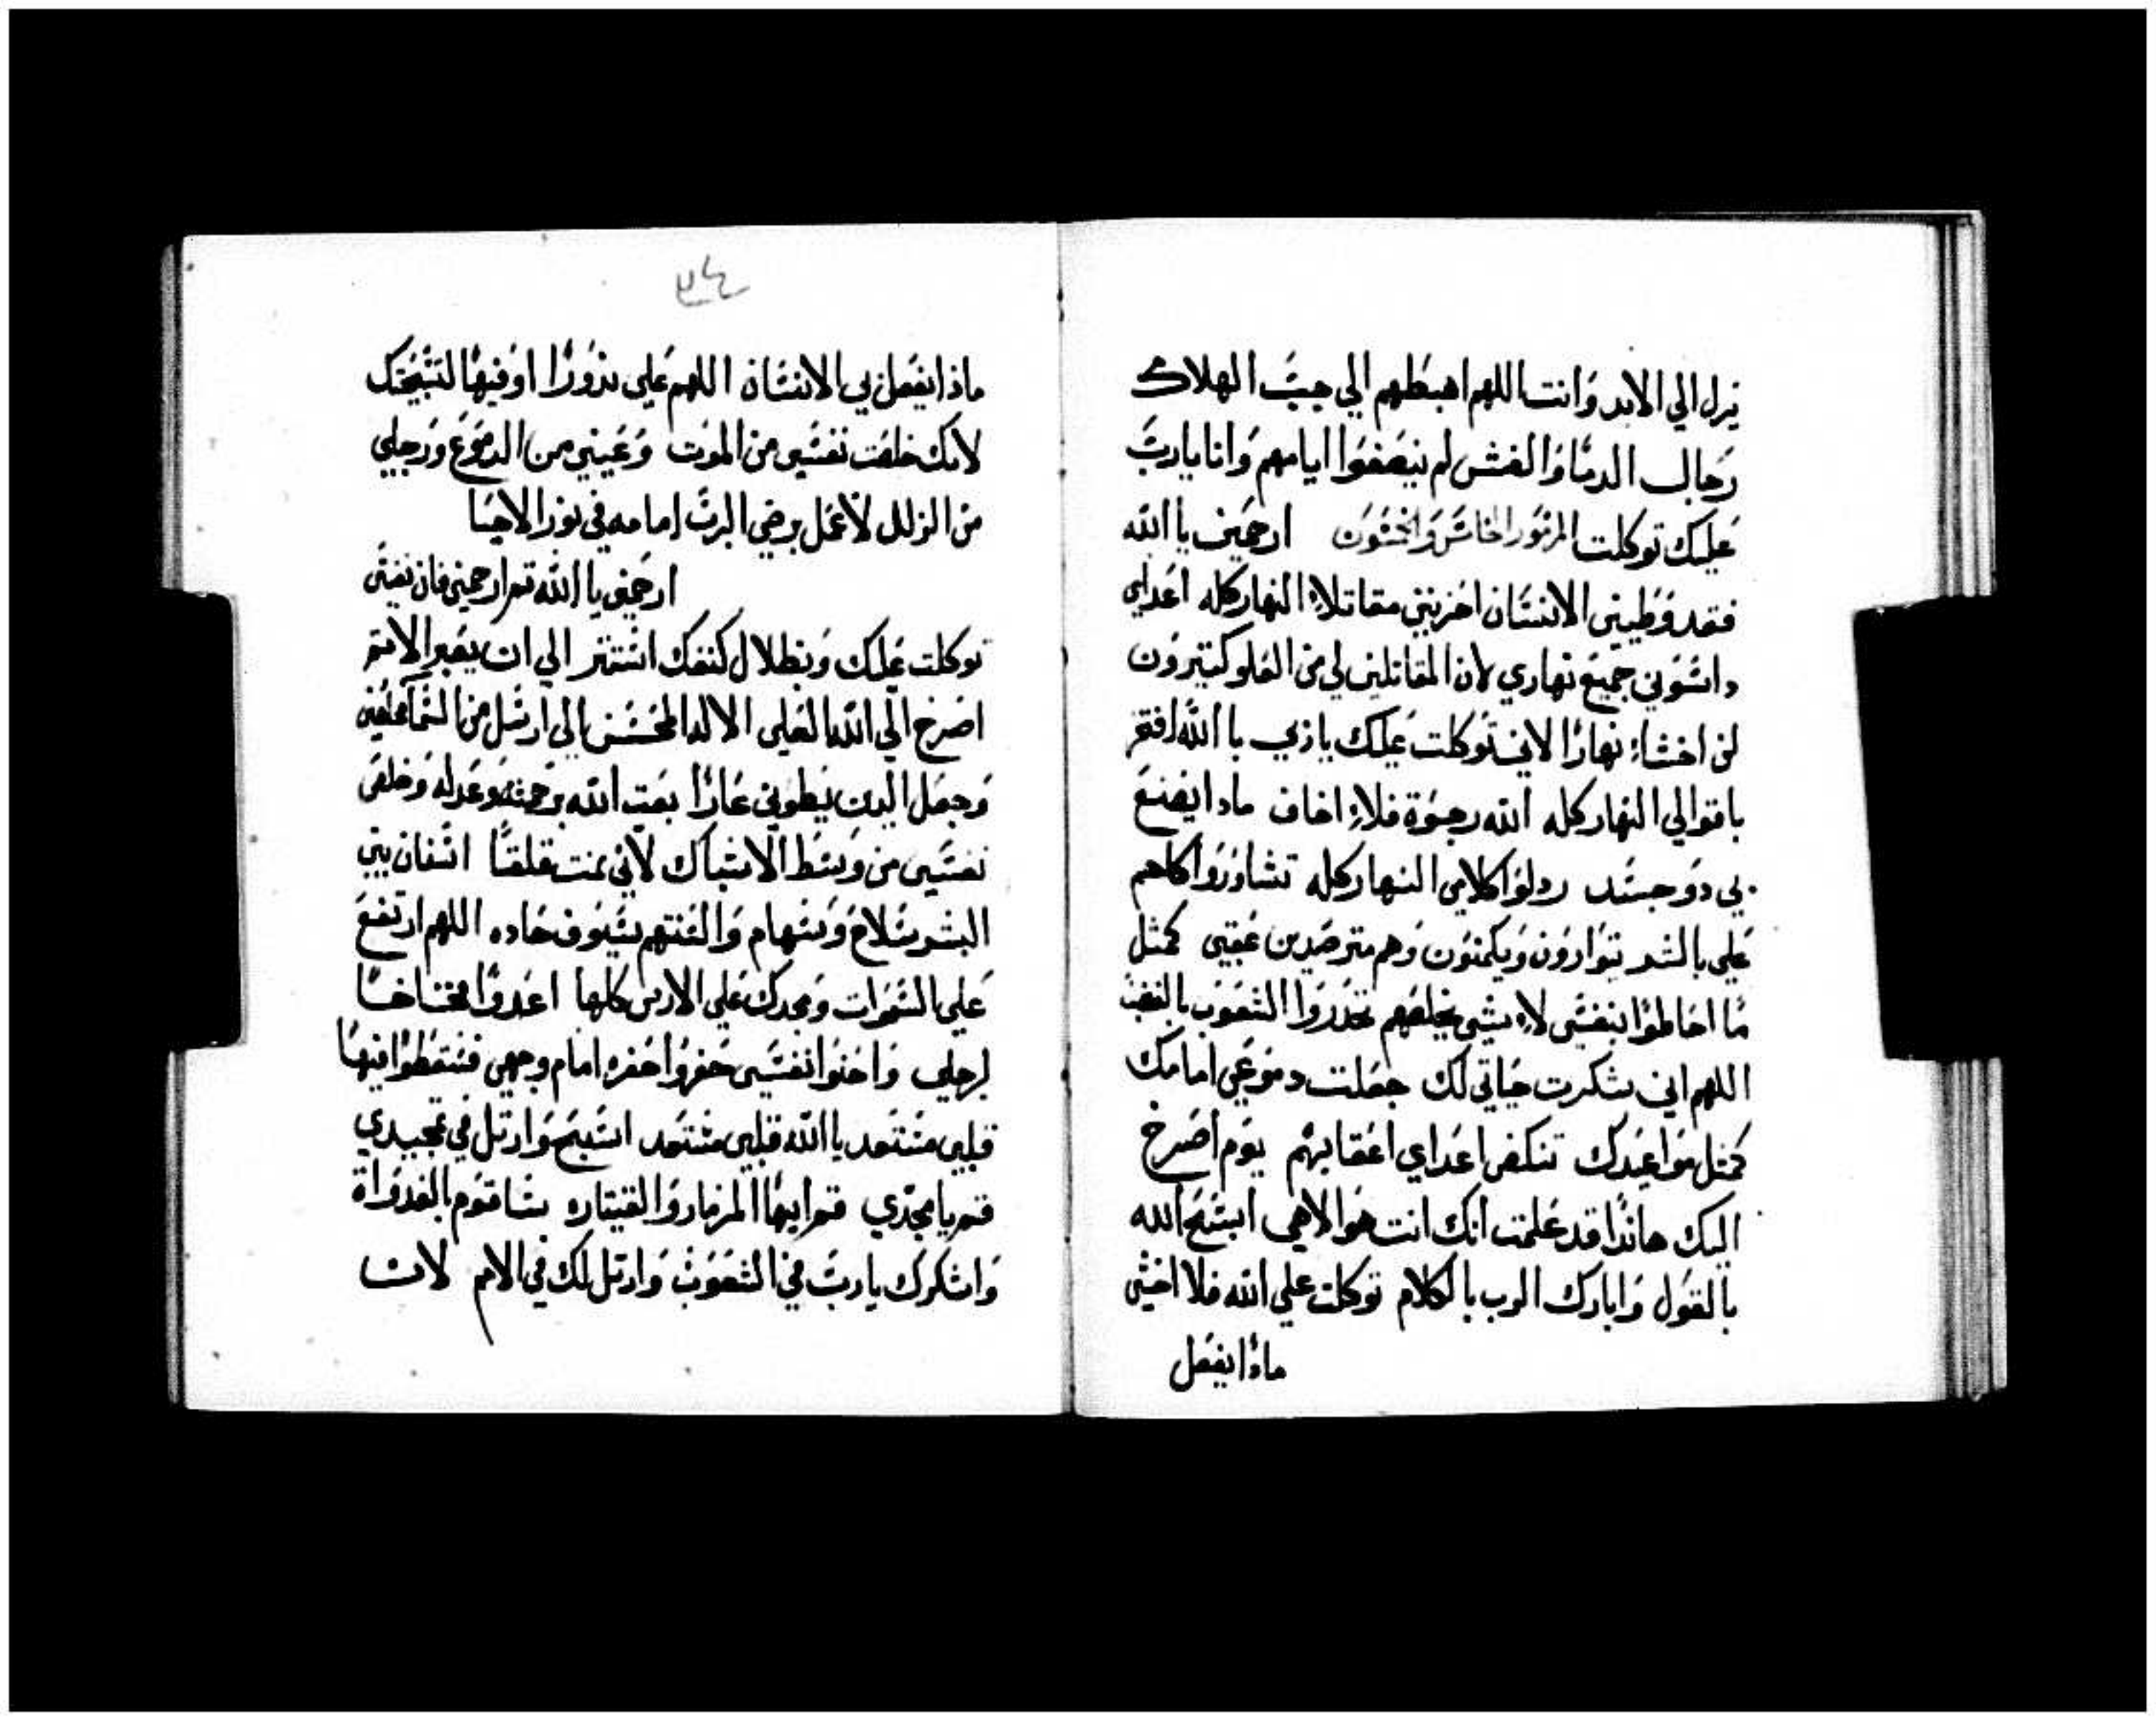 نزل الي الابد وَانت اللهم اهبطهم الي جبّ الهلاك
رَجال الدمَّا وَالغش لم نيصَفوَا ايامهم وَانا يا ربّ
عَليك توكلت المزمَور الخامسّ وَالخمسَون ارحمَني يا الله
فقد وَطيني الانسَان احزَنني مقاتلاً النهار كله اعَداي
داسَوني جميَع نهاري لان المقاتلين لي من العَلو كتيروَن
لن اخشاء نهارًا لاني توَكلت عَليك يا ربي با الله افتخر
باقوالي النهار كله الله رجوَة فلاء اخاف مادا يصَنع
بي دوَ جسَد ردلوَا كلامي النهار كله تشاورَوا كلهم
عَلي بالشر توَاروَن وَيكمنوَن وَهم مترصَدين عَقبي كمثل
مَا احَاطوَا بنفسَي لاء بشي تخلصَهم تحدروَا الشعَوَب بالغضَب
اللهم اني شكرت حَياتي لك جعَلت دموَعي امامك
كمثل موَاعَيدك تنكص اعَداي اعَقابهم يوَم اصَرخ
اليك هاندا قد عَلمت انك انت هوَ الاهي اسَبح الله
بالقوَل وَابارك الرب بالكلام توكلت علي الله فلا اخشي
ماذا يفعَل
٣٤
ماذا يفعَل بي الانسَان اللهم عَلي ندوَرًا اوَفيهَا لتسَبيحَك
لانك خلصَت نفسَي من الموَت وَعَيني من الدموَع وَرَجلي
مَن الزلل لاعَمل برضي الربّ امامه في نوَر الاحيَا
ارحَمني يا الله تم ارحمني فان نفسَي
توكلت عَليك وَبظلال كنفك استتر الي ان يعَبر الاتم
اصَرخ الي الله العَلي الاله المحسَن الي ارسَل من السَّما فخلصَني
وَجعَل الدين يَطوني عَارًا بعَت الله برَحمته وَعَدله وَخلصَ
نفسَي من وَسَط الاشباك لاني نمت قلقًا اسَنان بني
البشر سَلاح وَسَهام وَالسَنتهم سَيوَف حَاده اللهم ارتفعَ
عَلي السَموَات وَمجدك عَلي الارض كلها اعَدوَا فخَاخًا
لرجلي وَاحنوَا نفسَي حَفروَا حَفره امام وَجهي فسَقطوَا فيهَا
قلبي مسَتعَد يا الله قلبي مسَتعَد اسَبح وَارتل في تمجيدي
قم يا مجدَي قم ايهَا المزمار وَالقيتاره سَاقوَم بالغدوَاة
وَاشكرك يا ربّ في الشعَوَب وَارتل لك في الامم لان